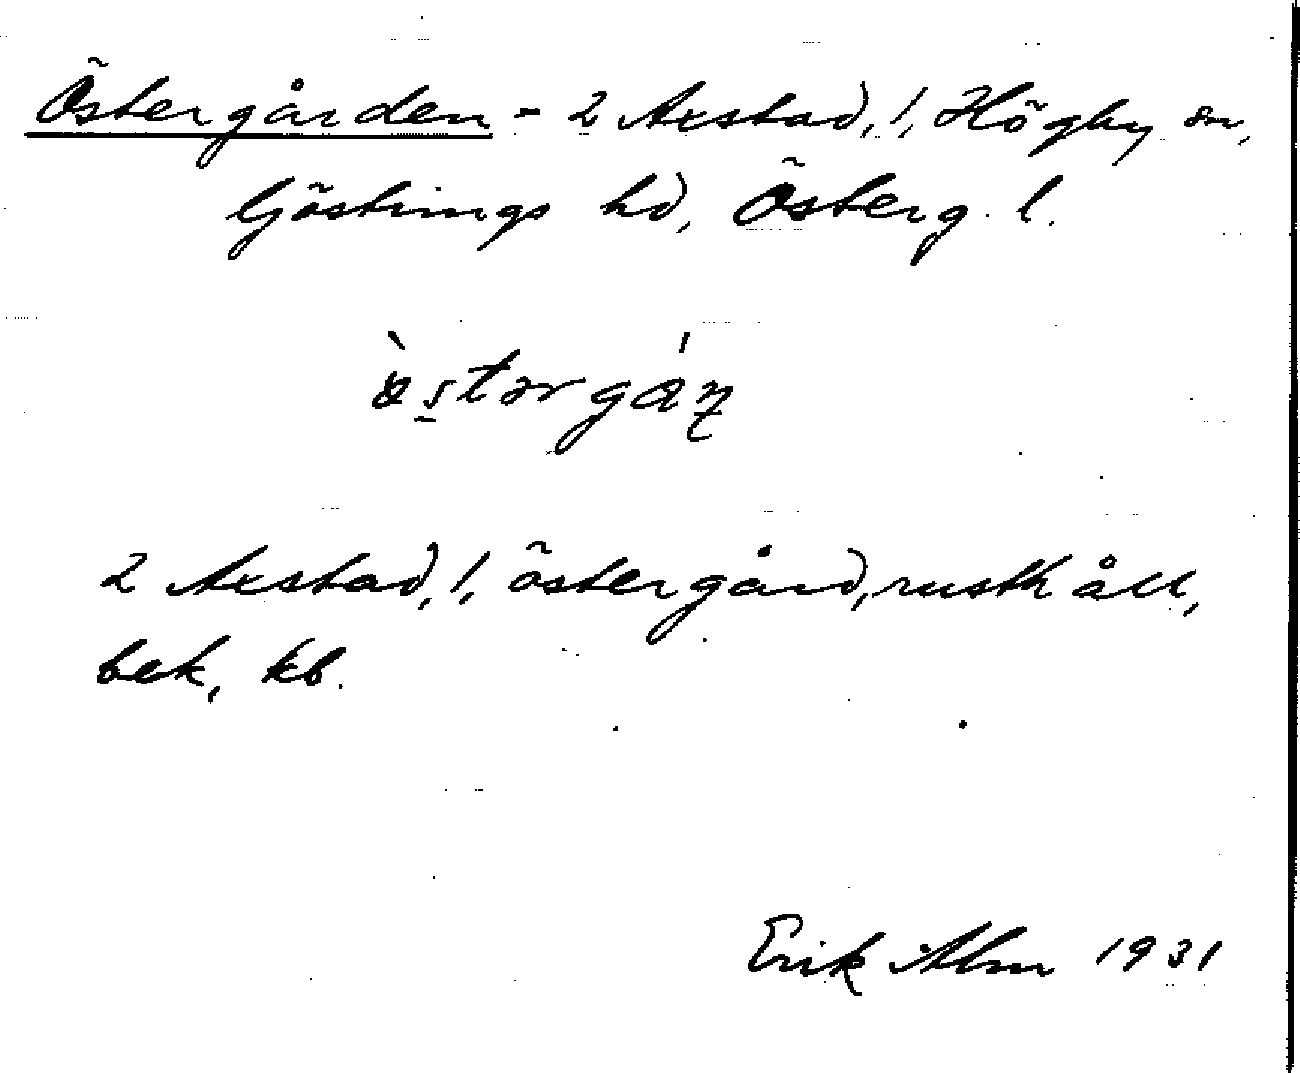 Östergården - 2 Axstad, 1, Högby sn,
Göstrings hd, Österg. l.
2 Axstad, 1, östergård, rusthåll,
bek, kb.
Erik Alm 1931